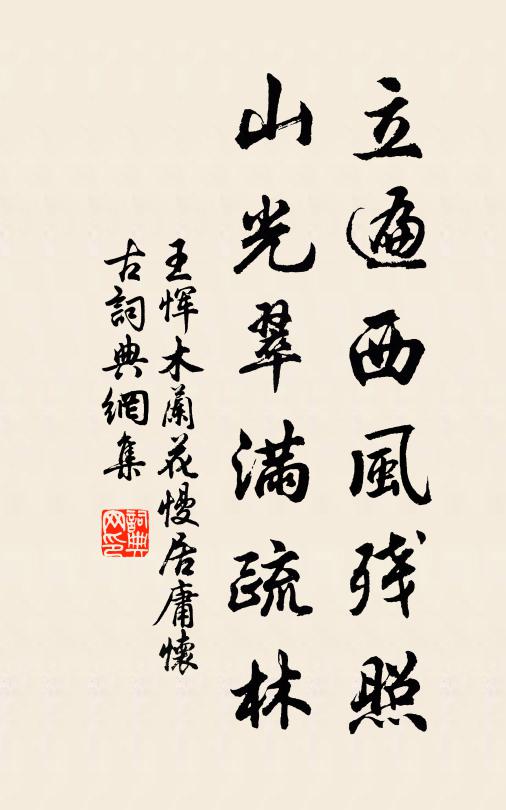 立遍西風残照
山光翠滿疏林
王惲木蘭花慢居庸懷
古詞典網集
詞典网印